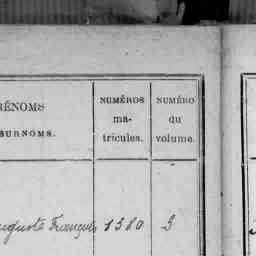 RÉNOMS
SURNOMS.
NUMÉROS
ma-
tricules.
NUMÉRO
du
volume.
uguste François 1380 3